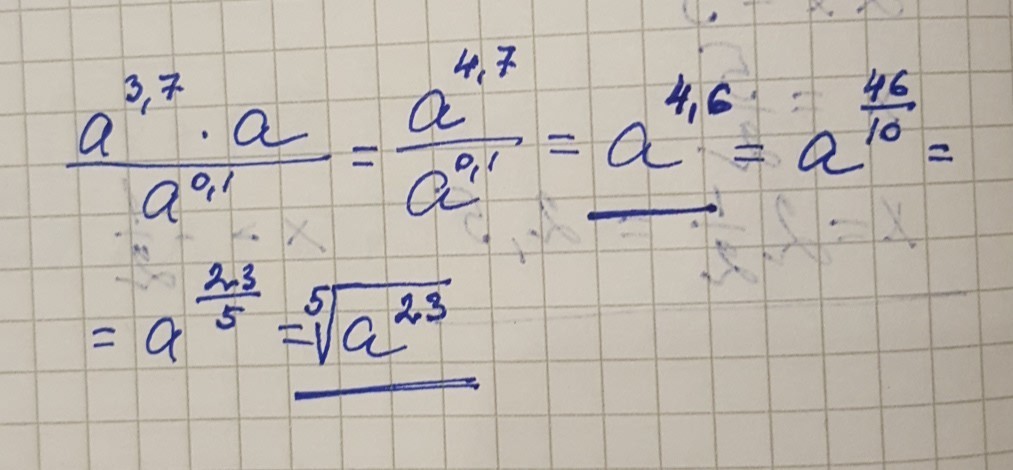 a^{3,7} · a / a^{0,1} = a^{4,7} / a^{0,1} = a^{4,6} = a^{46/10} =
= a^{23/5} = ⁵√(a^{23})